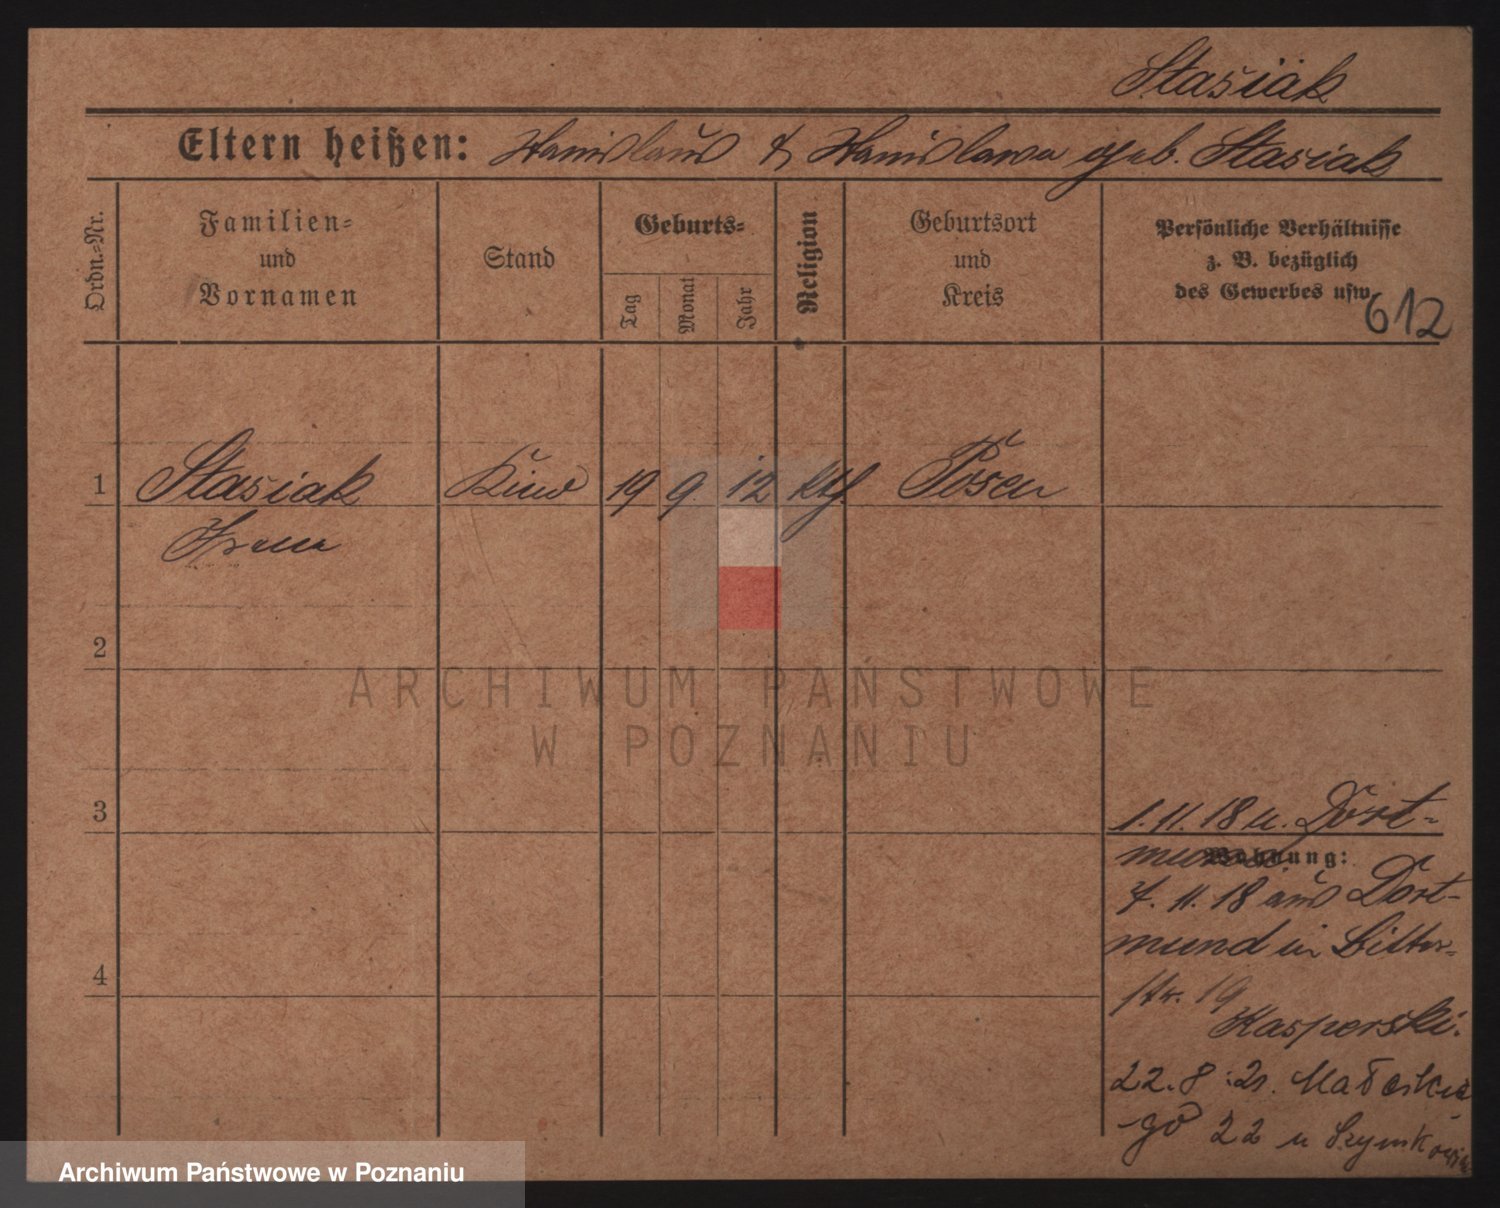 Stasiak
Eltern heißen: Stanislaus & Stanislawa geb. Stasiak
Ordn.-Nr.
Familien-
und
Vornamen
Stand
Geburts-
Tag
Monat
Jahr
Religion
Geburtsort
und
Kreis
Persönliche Verhältnisse
z. B. bezüglich
des Gewerbes usw.
612
1 Stasiak Kind 19 9 12 kth Posen
Irena
2
ARCHIWUM PAŃSTWOWE
W POZNANIU
3
1.11.18 n. Dort-
mund
Wohnung:
7.11.18 aus Dort-
mund in Bitter-
str. 19
Kasperski.
22.8.21. Małeckie-
go 22 u Szymkowiak
4
Archiwum Państwowe w Poznaniu